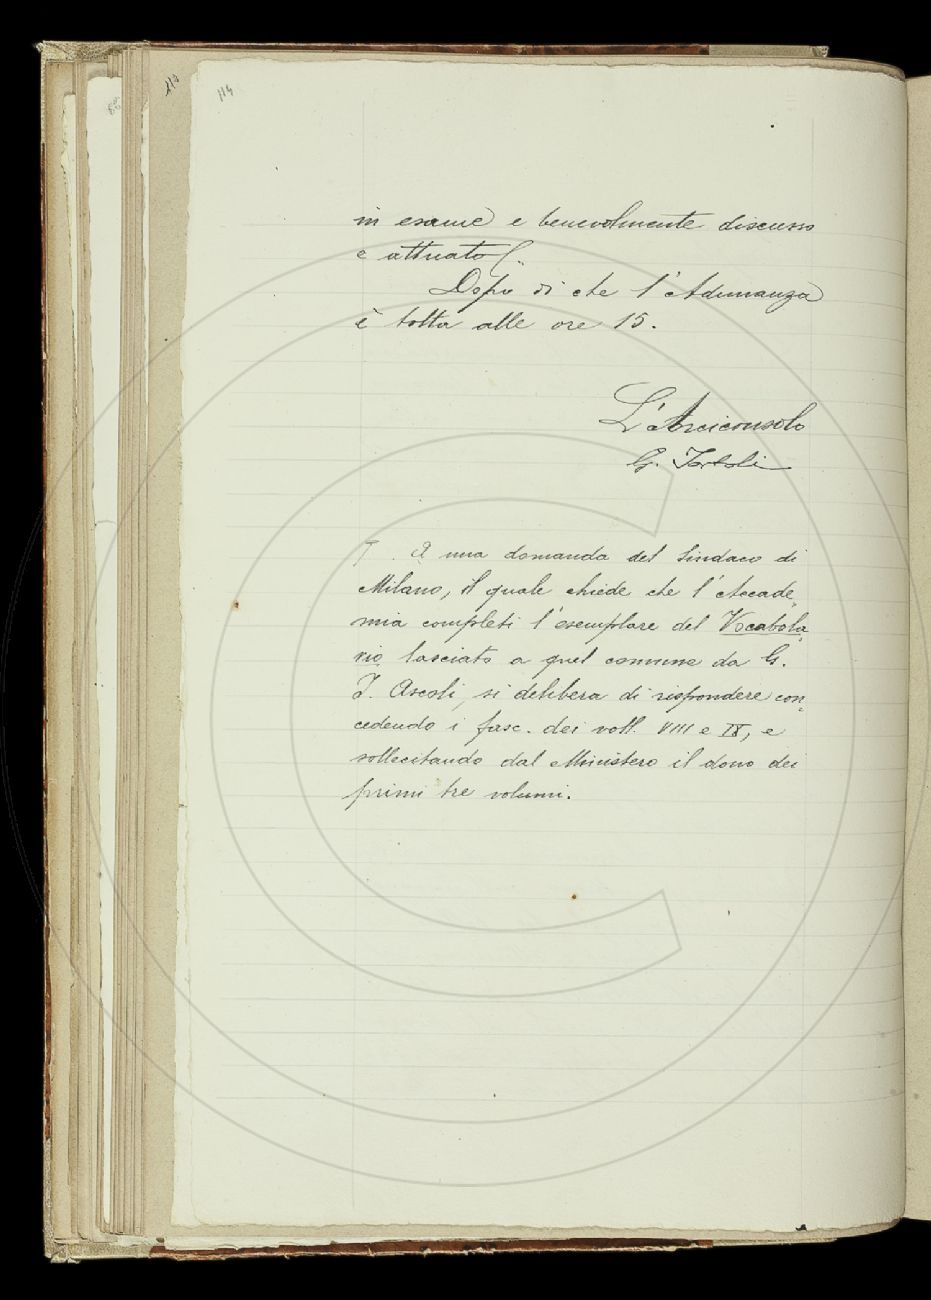 114
in esame e benevolmente discusso
e attuato.
Dopo di che l'Adunanza
è tolta alle ore 15.
L'Arciconsolo
G. Tortoli
A una domanda del Sindaco di
Milano, il quale chiede che l'Accade„
mia completi l'esemplare del Vocabola„
rio lasciato a quel comune da G.
I. Ascoli, si delibera di rispondere con„
cedendo i fasc. dei voll. VIII e IX, e
sollecitando dal Ministero il dono dei
primi tre volumi.